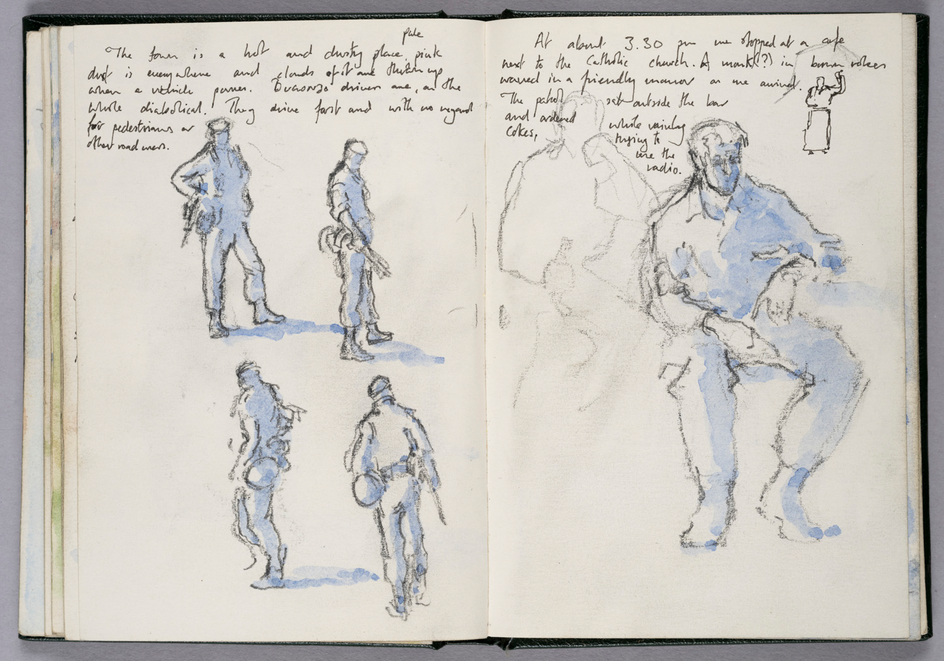 The town is a hot and dusty place, pale pink
dust is everywhere and clouds of it are thrown up
when a vehicle passes. drivers are, on the
whole diabolical. They drive fast and with no regard
for pedestrians or
other road users.
At about 3.30 pm we stopped at a cafe
next to the Catholic church. A monk(?) in brown robes
waved in a friendly manner as we arrived.
The patrol sat outside the bar
and ordered
Cokes, while vainly
trying to
use the
radio.